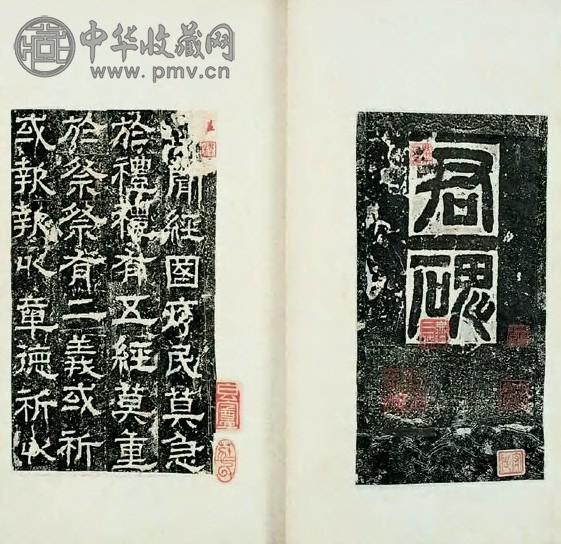 中华收藏网
www.pmv.cn
君碑
聞經國序民莫急
於禮禮有五經莫重
於祭祭有二義或祈
或報報以章德祈以